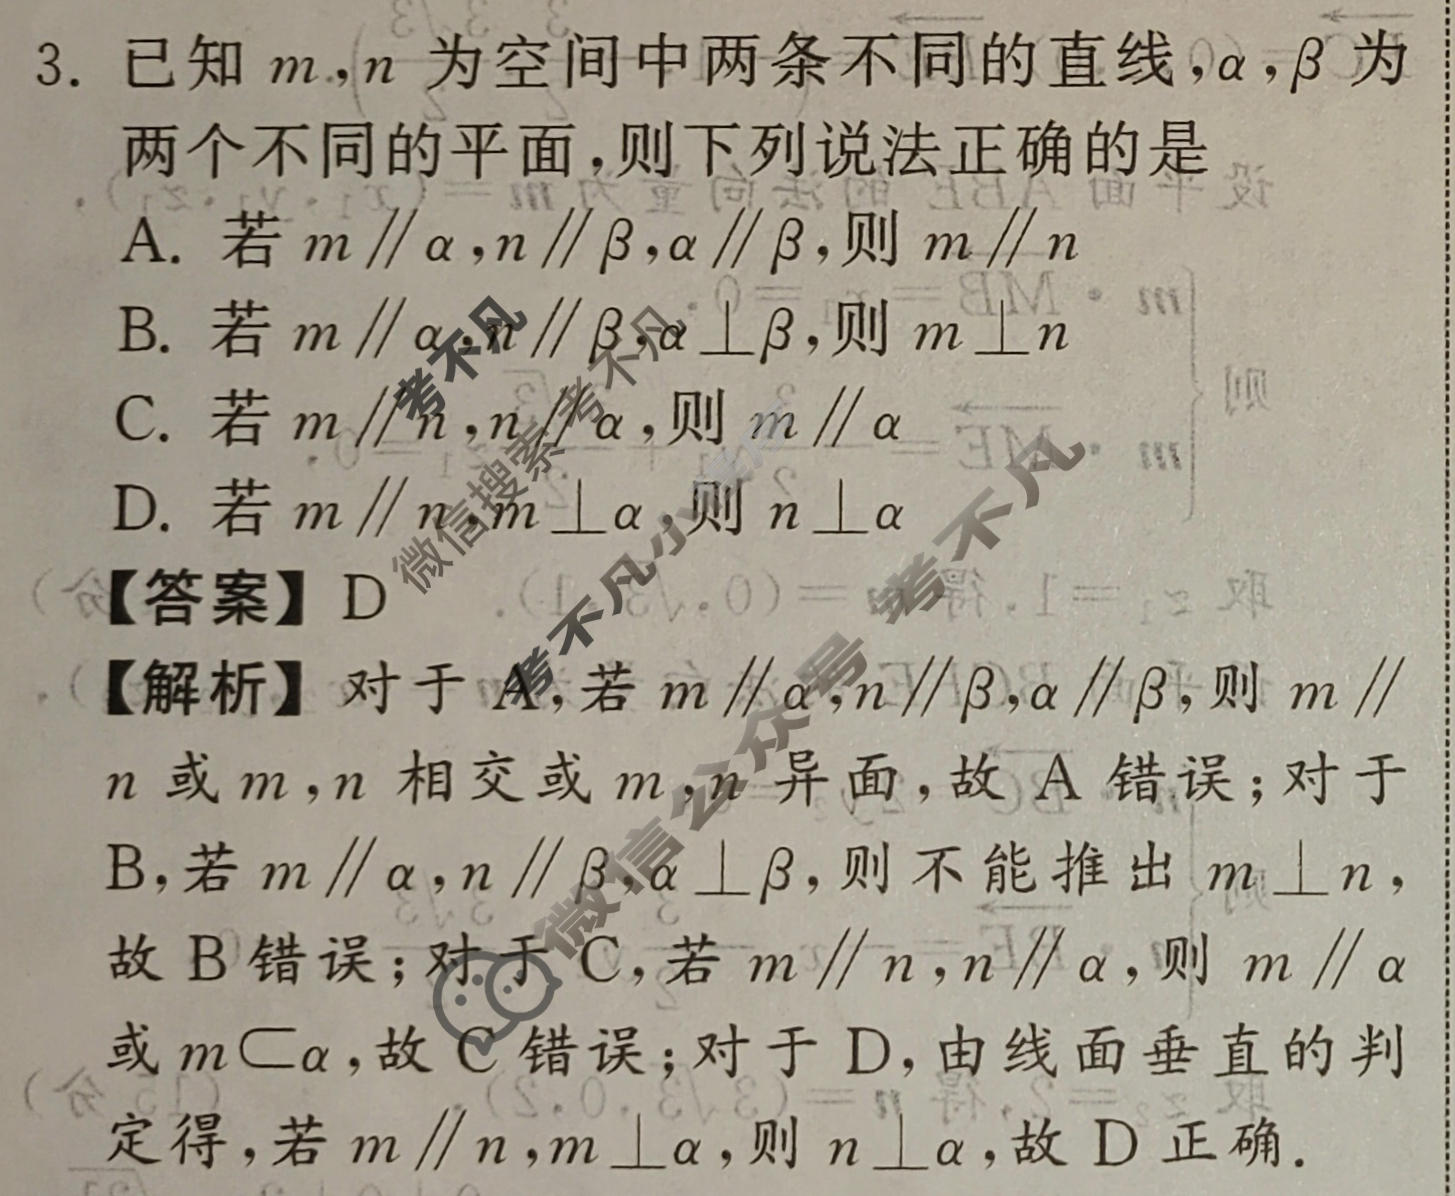 3. 已知 m,n 为空间中两条不同的直线,α,β 为
两个不同的平面,则下列说法正确的是
A. 若 m∥α,n∥β,α∥β,则 m∥n
B. 若 m∥α,n∥β,α⊥β,则 m⊥n
C. 若 m∥n,n∥α,则 m∥α
D. 若 m∥n,m⊥α,则 n⊥α
【答案】D
【解析】对于 A,若 m∥α,n∥β,α∥β,则 m∥
n 或 m,n 相交或 m,n 异面,故 A 错误;对于
B,若 m∥α,n∥β,α⊥β,则不能推出 m⊥n,
故 B 错误;对于 C,若 m∥n,n∥α,则 m∥α
或 m⊂α,故 C 错误;对于 D,由线面垂直的判
定得,若 m∥n,m⊥α,则 n⊥α,故 D 正确.
考不凡
微信搜索 考不凡
微信公众号 考不凡